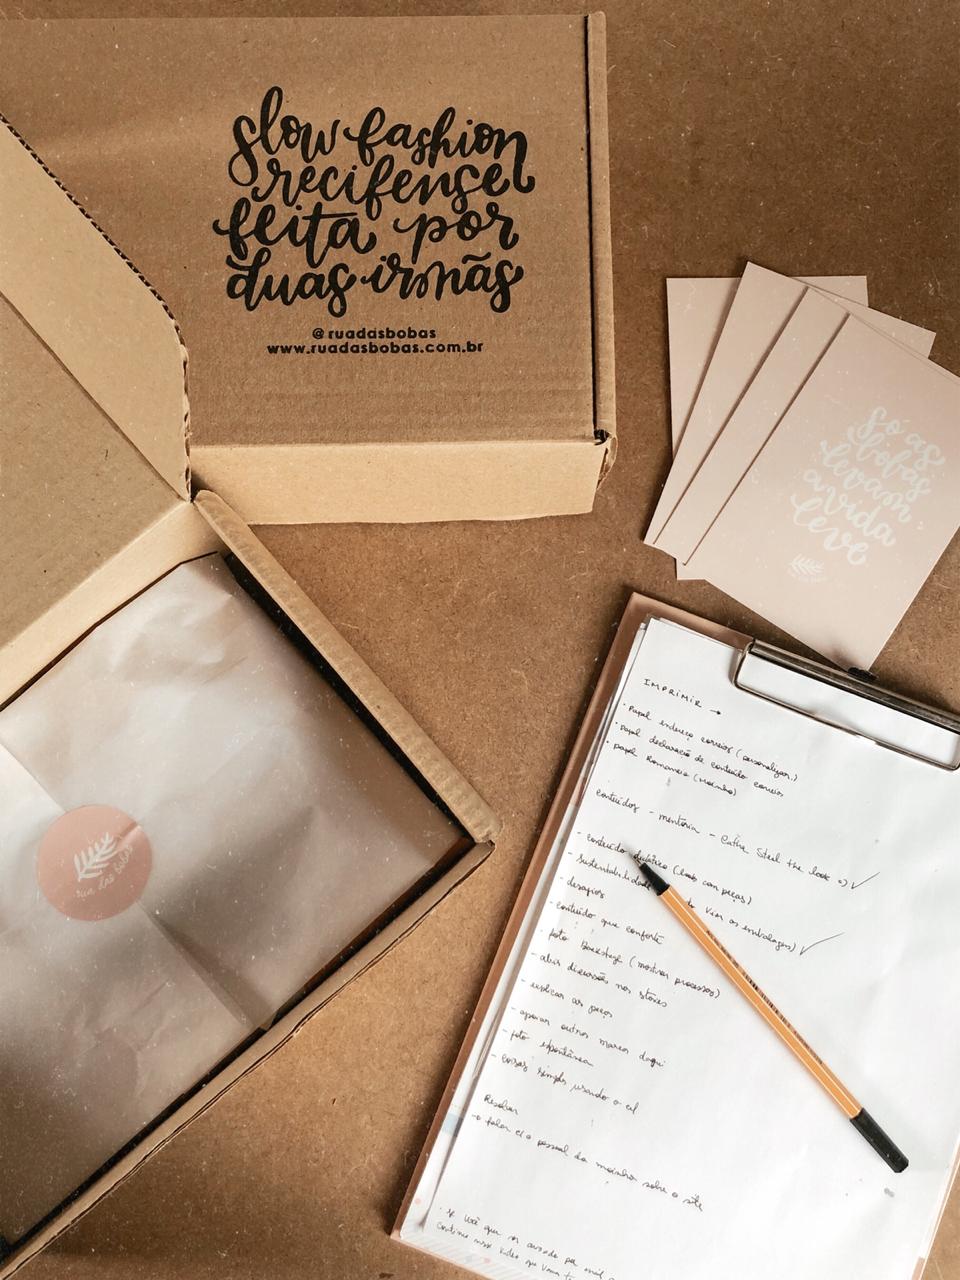 slow fashion
recifense
feita por
duas irmãs
@ruadasbobas
www.ruadasbobas.com.br
só as
bobas
levam
a vida
leve
rua das bobas
IMPRIMIR →
· Papel endereço correios (personalizar)
· Papel declaração de conteúdo correios
· Papel Romaneio
conteúdos - mentoria - Steal the look
- conteúdo didático (look com preços)
- Sustentabilidade as embalagens)
- desafios
- conteúdo que conforte
- foto Backstage (mostrar processos)
- abrir discussões nos stories
- explicar as peças
- apoiar outras marcas daqui
- foto espontânea
- coisas simples usando o cel
Resolver
o pessoal da sobre o site